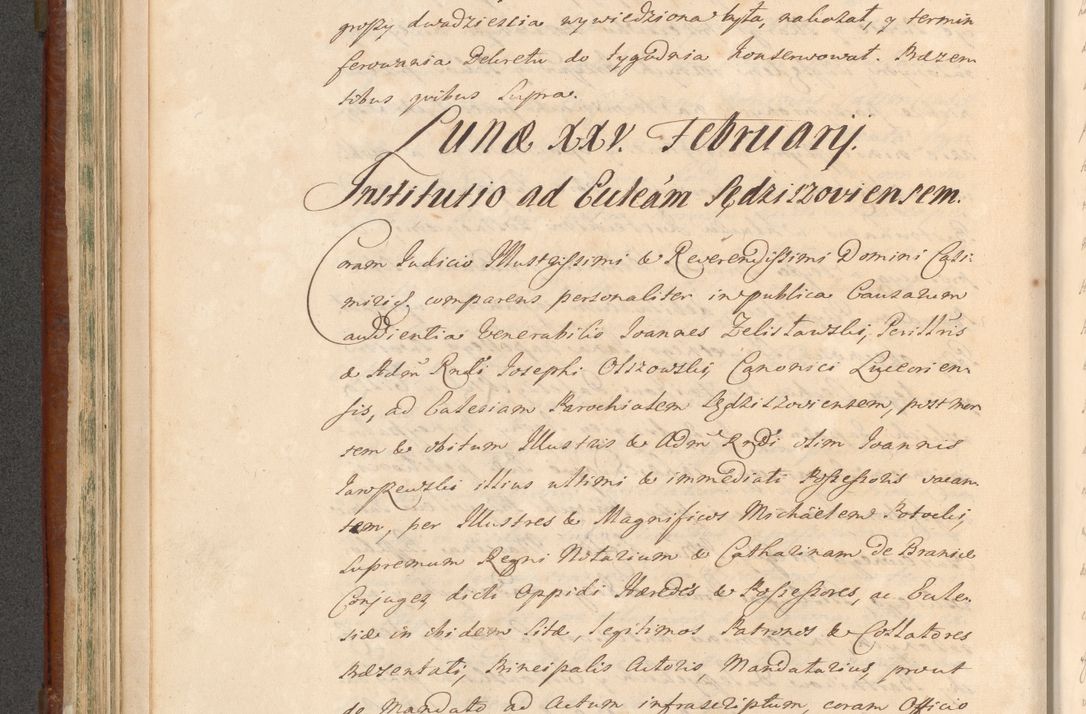 groszy dwadziescia wywiedziona była, nakazał, y termin
ferowania Dekretu do tygodnia konserwował. Præsen
tibus quibus supra.
Lunæ XXV. Februarij.
Institutio ad Ecclēām Sędziszoviensem.
Coram Judicio Illustrissimi & Reverendissimi Domini Casi:
miri &. comparens personaliter in publica Causarum
audientia Venerabilis Joannes Zelisławski, Perillūris
& Admͫ Rndi Josephi Olszowski Canonici Luceorien
sis, ad Ecclesiam Parochialem Sędziszoviensem, post mor
tem & obitum Illustris & Admͫ Rndi olim Joannis
Jaroszewski illius ultimi & immediati Possessoris vacan
tem, per Illustres & Magnificos Michaelem Potocki,
Supremum Regni Notarium & Catharinam de Branice
Conjuges dicti Oppidi Hæredes & Possessores, ac Eccle
siæ in ibidem sitæ, legitimos Patronos & Collatores
Præsentati, Principalis Actoris, Mandatarius, prout
de Mandato ad Actum infrascriptum, coram Officio